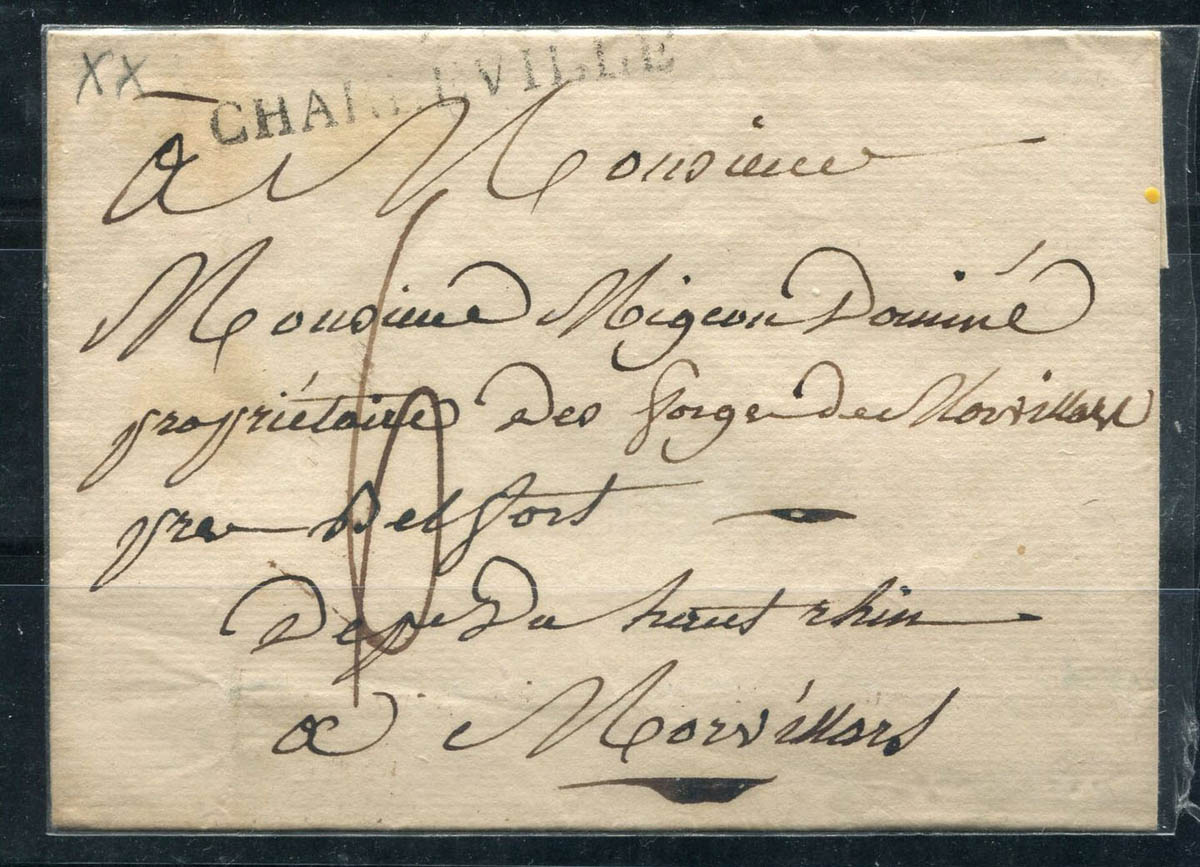 XX
CHARLEVILLE
à Monsieur
Monsieur Migeon Dominé
propriétaire des forges de Morvillars
pres Belfort
Dept Du haut rhin
a Morvillars